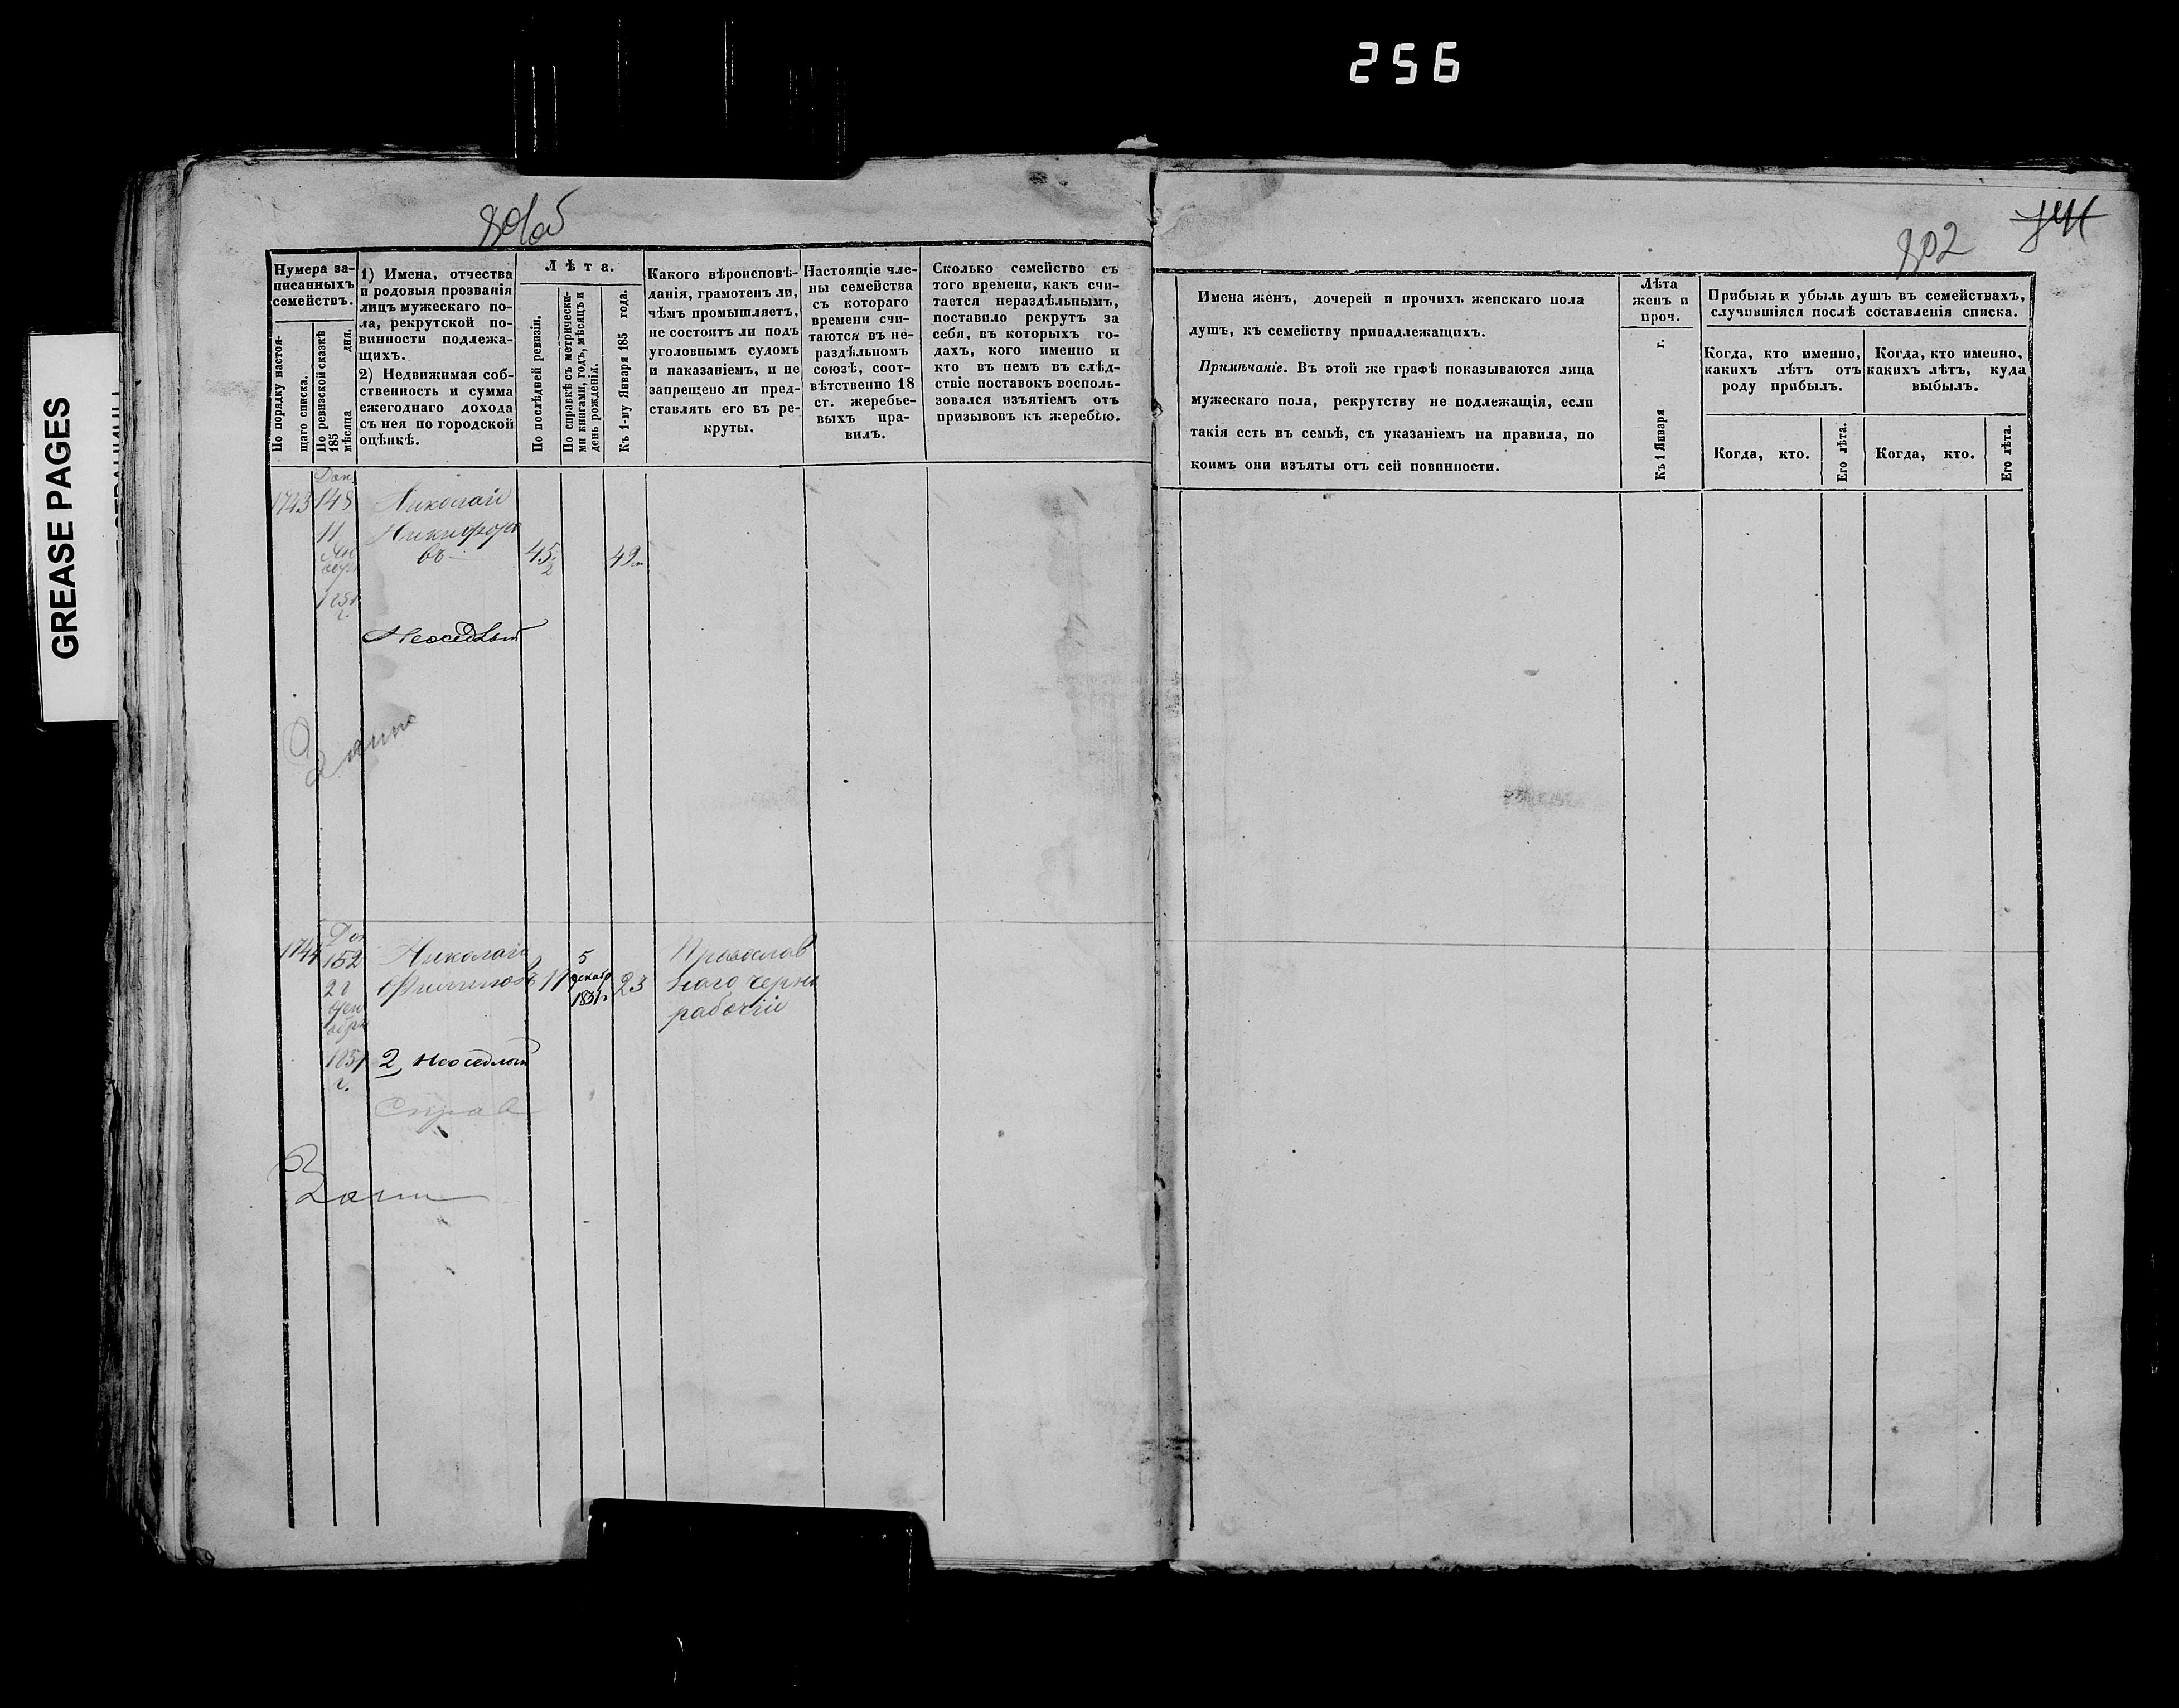 256
GREASE PAGES
801об
802
Нумера за-
писанныхъ
семействъ.
По порядку настоя-
щаго списка.
По ревизской сказкѣ
185 дня.
мѣсяца
1) Имена, отчества
и родовыя прозванія
лицъ мужескаго по-
ла, рекрутской по-
винности подлежа-
щихъ.
2) Недвижимая соб-
ственность и сумма
ежегоднаго дохода
съ нея по городской
оцѣнкѣ.
Лѣта.
По послѣдней ревизіи.
По справкѣ съ метрически-
ми книгами, годъ, мѣсяцъ и
день рожденія.
Къ 1-му Января 185 года.
Какого вѣроисповѣ-
данія, грамотенъ ли,
чѣмъ промышляетъ,
не состоитъ ли подъ
уголовнымъ судомъ
и наказаніемъ, и не
запрещено ли пред-
ставлять его въ ре-
круты.
Настоящіе чле-
ны семейства
съ котораго
времени счи-
таются въ не-
раздѣльномъ
союзѣ, соот-
вѣтственно 18
ст. жеребье-
выхъ пра-
вилъ.
Сколько семейство съ
того времени, какъ счи-
тается нераздѣльнымъ,
поставило рекрутъ за
себя, въ которыхъ го-
дахъ, кого именно и
кто въ немъ въ слѣд-
ствіе поставокъ восполь-
зовался изъятіемъ отъ
призывовъ къ жеребью.
Имена женъ, дочерей и прочихъ женскаго пола
душъ, къ семейству принадлежащихъ.
Примѣчаніе. Въ этой же графѣ показываются лица
мужескаго пола, рекрутству не подлежащія, если
такія есть въ семьѣ, съ указаніемъ на правила, по
коимъ они изъяты отъ сей повинности.
Лѣта
женъ и
проч.
Къ 1 Января г.
Прибыль и убыль душъ въ семействахъ,
случившіяся послѣ составленія списка.
Когда, кто именно,
какихъ лѣтъ отъ
роду прибылъ.
Когда, кто именно,
какихъ лѣтъ, куда
выбылъ.
Когда, кто.
Его лѣта.
Когда, кто.
Его лѣта.
1743
Доп.
148
11
1851
г.
Николай
Никифоро
въ
45½
49
Неоседлый
1744
Доп
152
21
1851
г.
Николай
Филиповъ
17
5
декабр
1831 г
23
Православ
наго черно
рабочій
2, Неоседлый
Справ